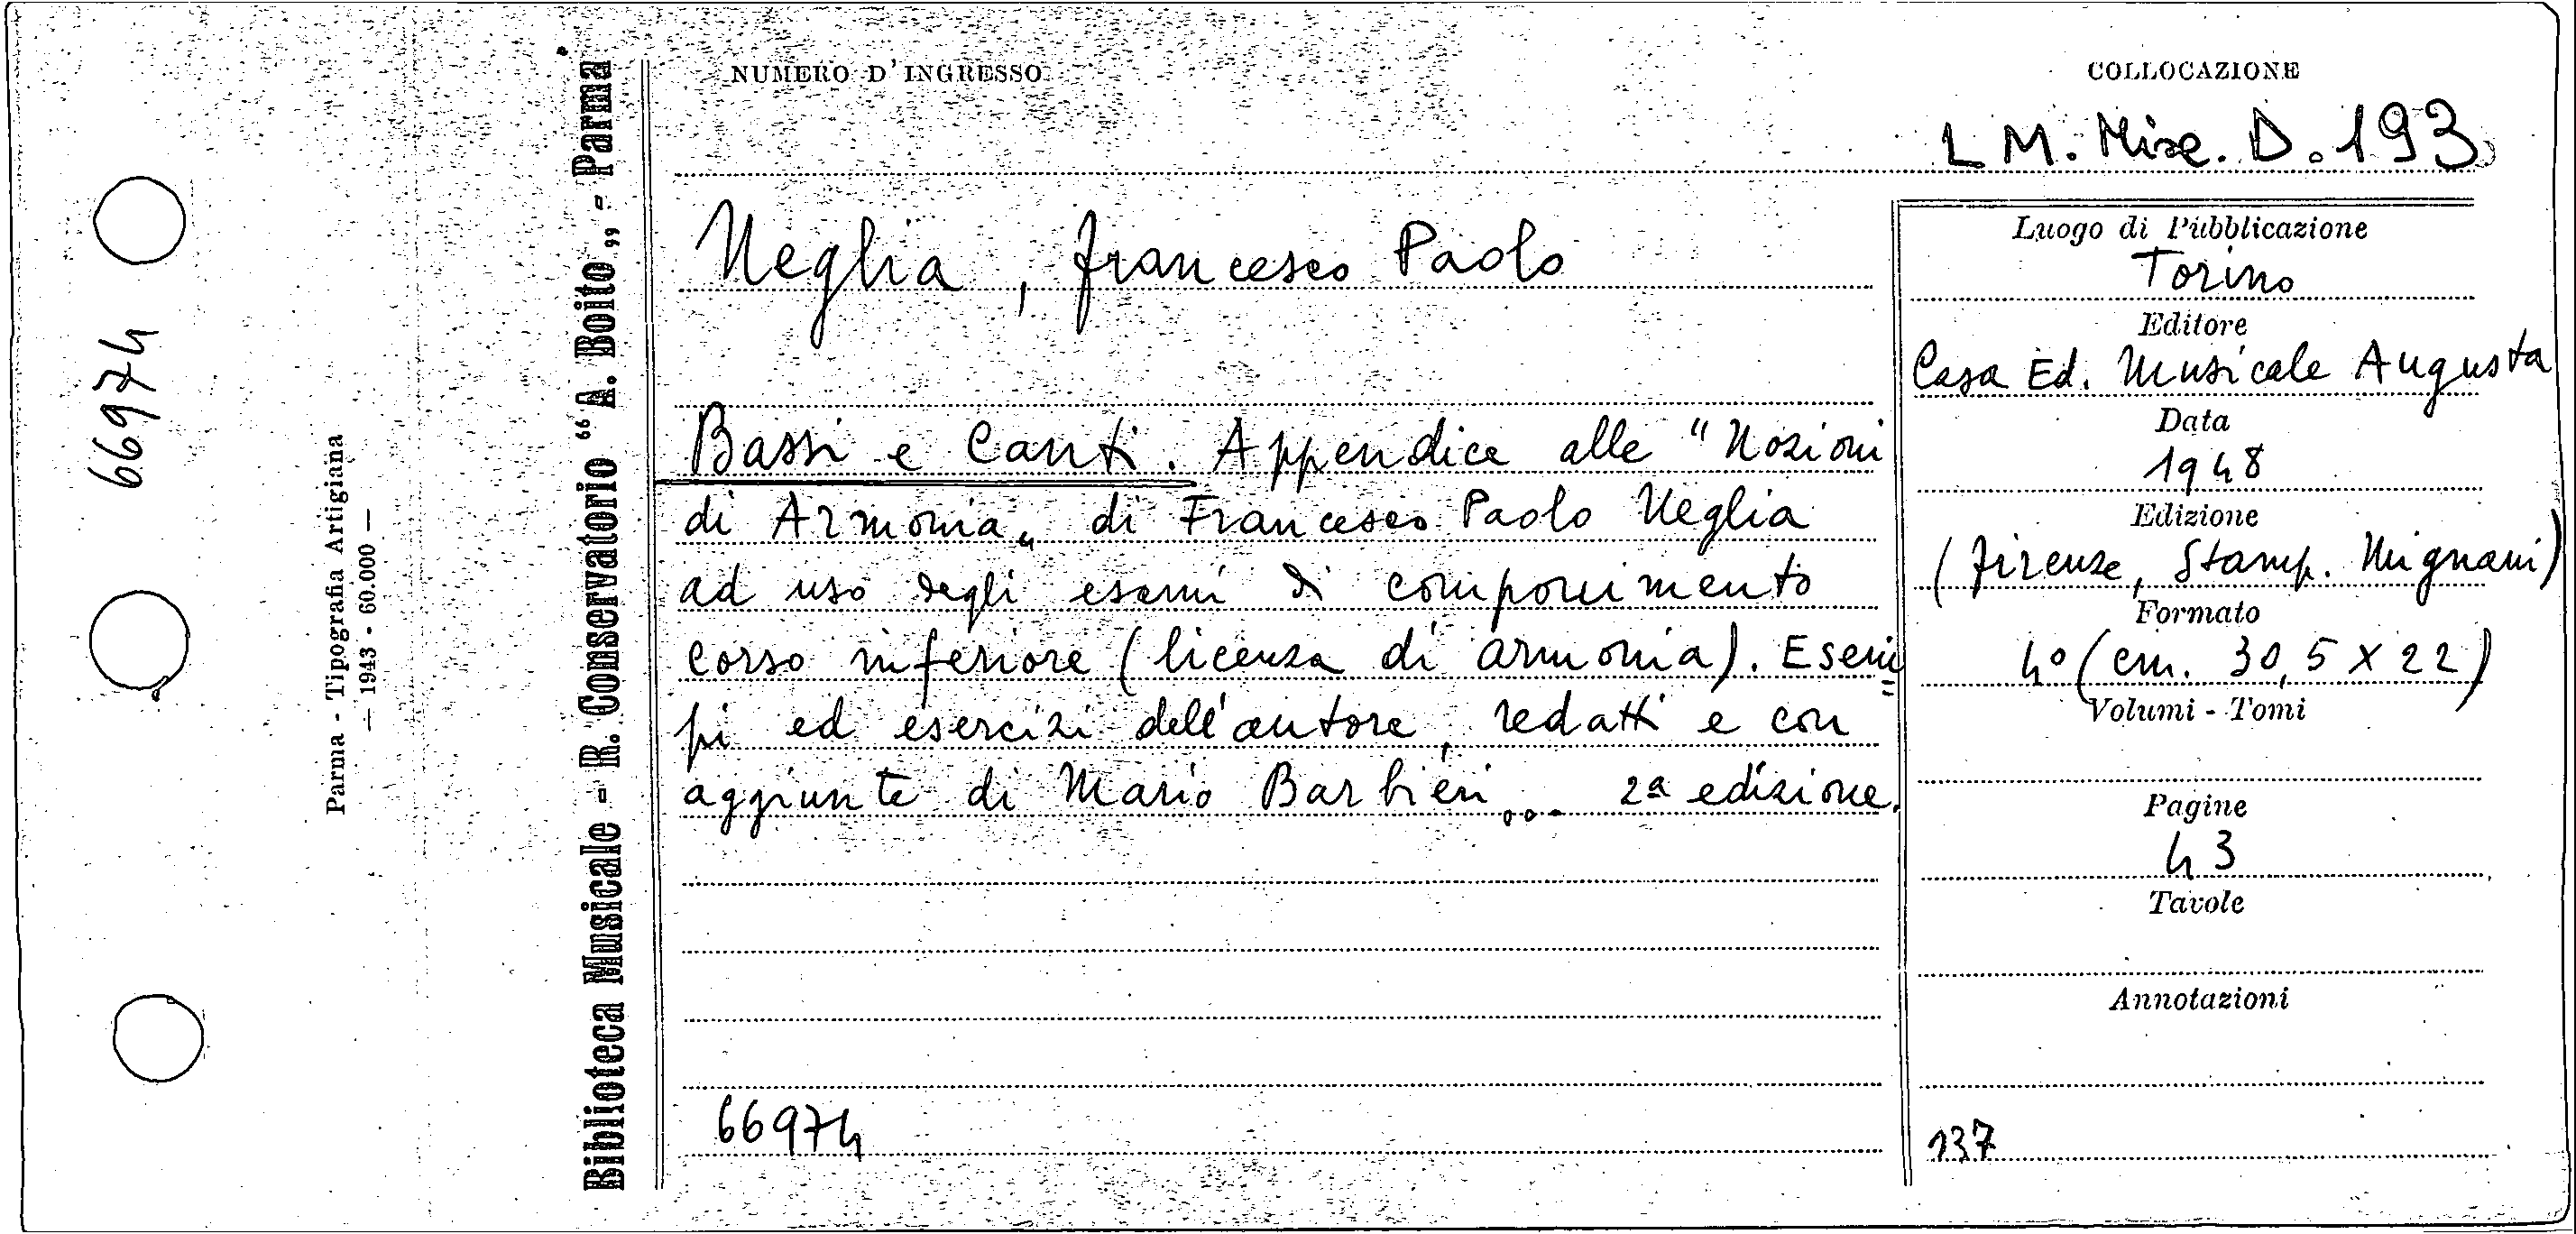 66974
Parma - Tipografia Artigiana
— 1943 - 60.000 —
Biblioteca Musicale - R. Conservatorio “A. Boito„ - Parma
NUMERO D'INGRESSO
COLLOCAZIONE
L M. Misc. D. 193
Neglia, Francesco Paolo
Bassi e Canti. Appendice alle “Nozioni
di Armonia„ di Francesco Paolo Neglia
ad uso degli esami di componimento
corso inferiore (licenza di armonia). Esem=
pi ed esercizi dell'autore, redatti e con
aggiunte di Mario Barbieri... 2ª edizione.
66974
Luogo di Pubblicazione
Torino
Editore
Casa Ed. Musicale Augusta
Data
1948
Edizione
(Firenze, Stamp. Mignani)
Formato
4º (cm. 30,5 x 22)
Volumi - Tomi
Pagine
43
Tavole
Annotazioni
137